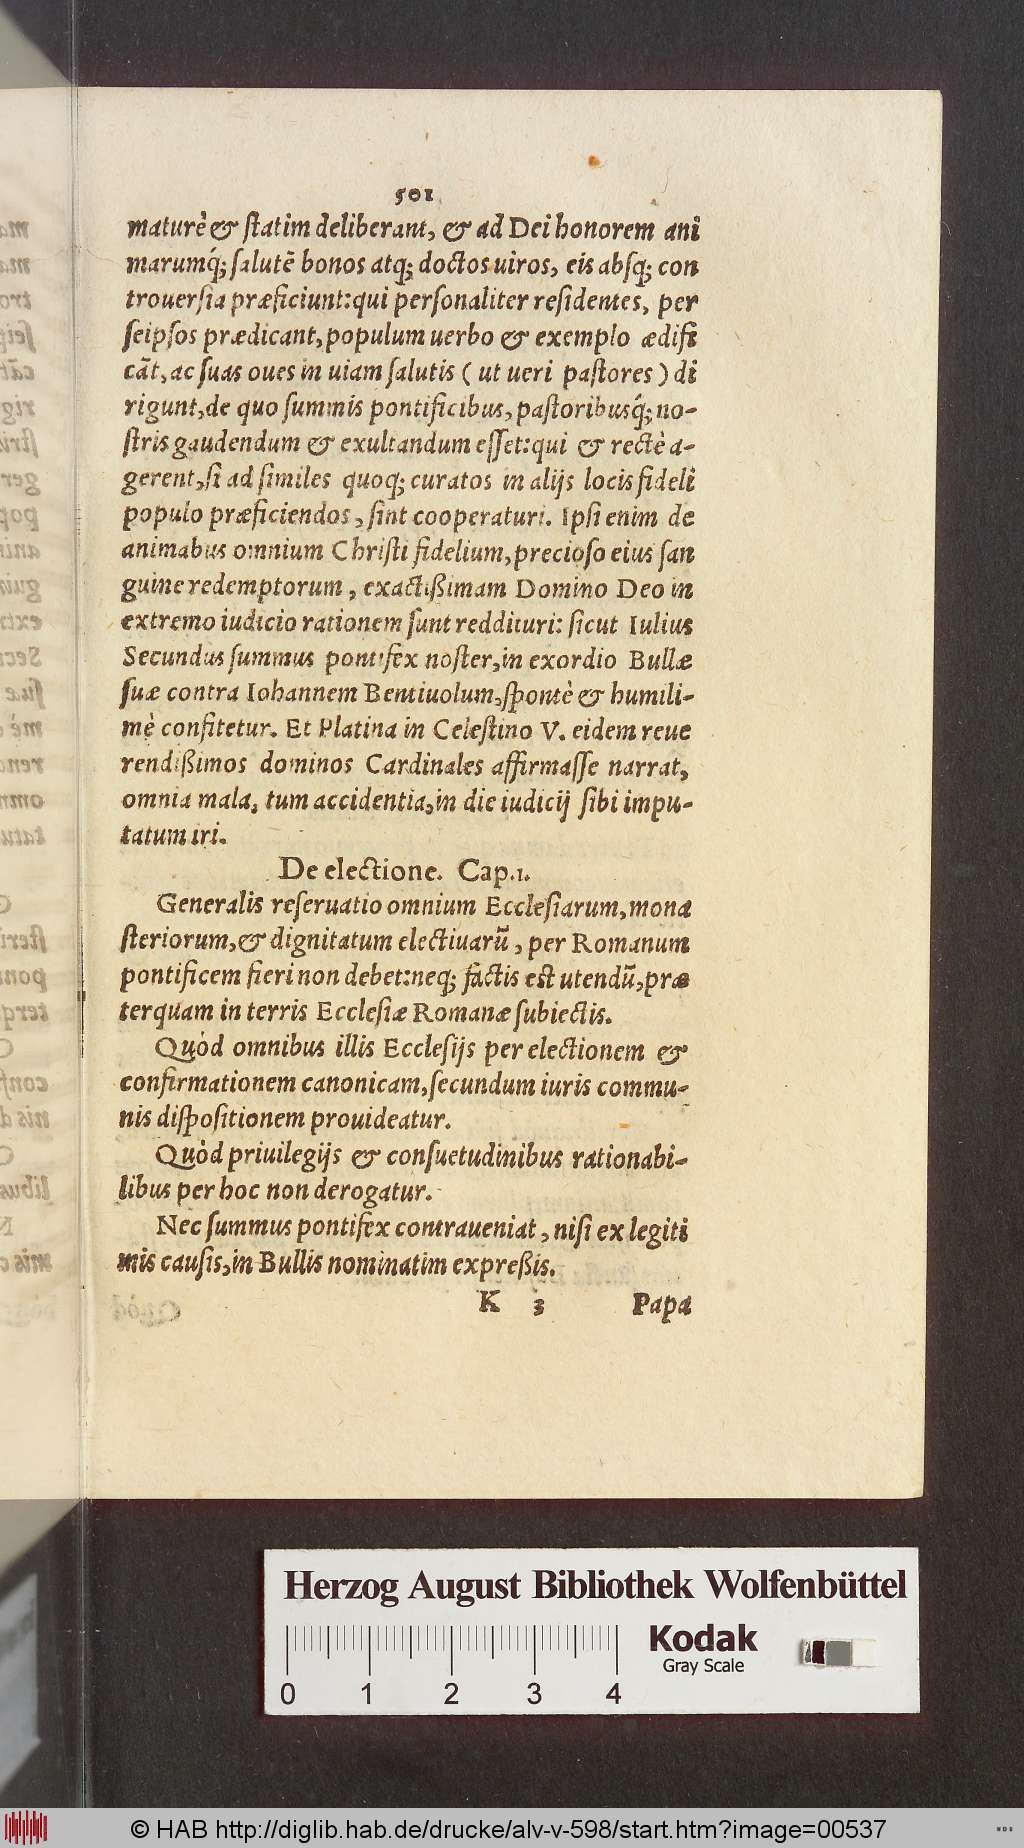 501
maturè & ſtatim deliberant, & ad Dei honorem ani
marumq́; ſalutē bonos atq; doctos uiros, eis abſq; con
trouerſia præficiunt: qui perſonaliter reſidentes, per
ſeipſos prædicant, populum uerbo & exemplo ædifi
cāt, ac ſuas oues in uiam ſalutis ( ut ueri paſtores ) di
rigunt, de quo ſummis pontificibus, paſtoribusq́; no-
ſtris gaudendum & exultandum eſſet: qui & rectè a-
gerent, ſi ad ſimiles quoq; curatos in alijs locis fideli
populo præficiendos, ſint cooperaturi. Ipſi enim de
animabus omnium Chriſti fidelium, precioſo eius ſan
guine redemptorum, exactißimam Domino Deo in
extremo iudicio rationem ſunt reddituri: ſicut Iulius
Secundus ſummus pontifex noſter, in exordio Bullæ
ſuæ contra Iohannem Bentiuolum, ſpontè & humili-
mè confitetur. Et Platina in Celeſtino V. eidem reue
rendißimos dominos Cardinales affirmaſſe narrat,
omnia mala, tum accidentia, in die iudicij ſibi impu-
tatum iri.
De electione. Cap.1.
Generalis reſeruatio omnium Eccleſiarum, mona
ſteriorum, & dignitatum electiuarū, per Romanum
pontificem fieri non debet: neq; factis eſt utendū, præ
terquam in terris Eccleſiæ Romanæ ſubiectis.
Quòd omnibus illis Eccleſijs per electionem &
confirmationem canonicam, ſecundum iuris commu-
nis diſpoſitionem prouideatur.
Quòd priuilegijs & conſuetudinibus rationabi-
libus per hoc non derogatur.
Nec ſummus pontifex contraueniat, niſi ex legiti
mis cauſis, in Bullis nominatim expreßis.
K 3 Papa
Herzog August Bibliothek Wolfenbüttel
Kodak
Gray Scale
0 1 2 3 4
© HAB http://diglib.hab.de/drucke/alv-v-598/start.htm?image=00537